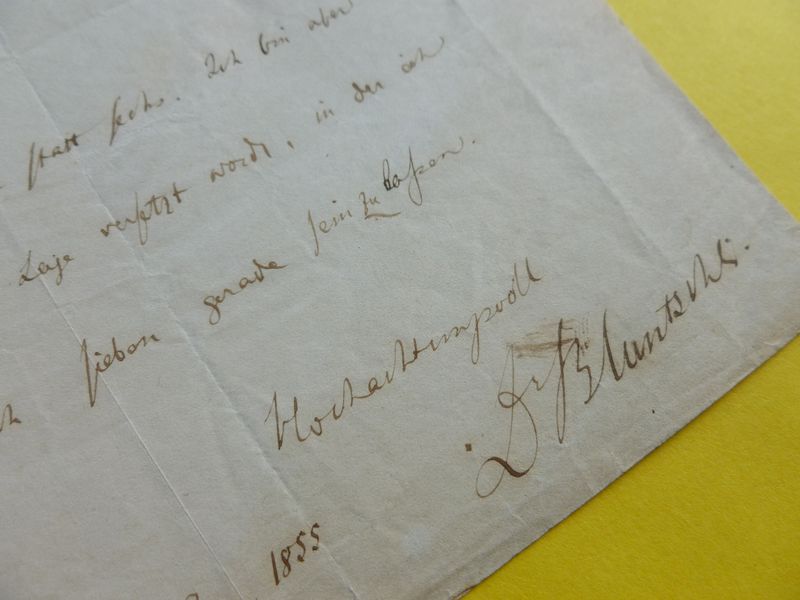 statt sechs. Ich bin aber
Lage versetzt worden, in der ich
sieben gerade sein zu laßen.
Hochachtungsvoll
Dr Bluntschli.
1855